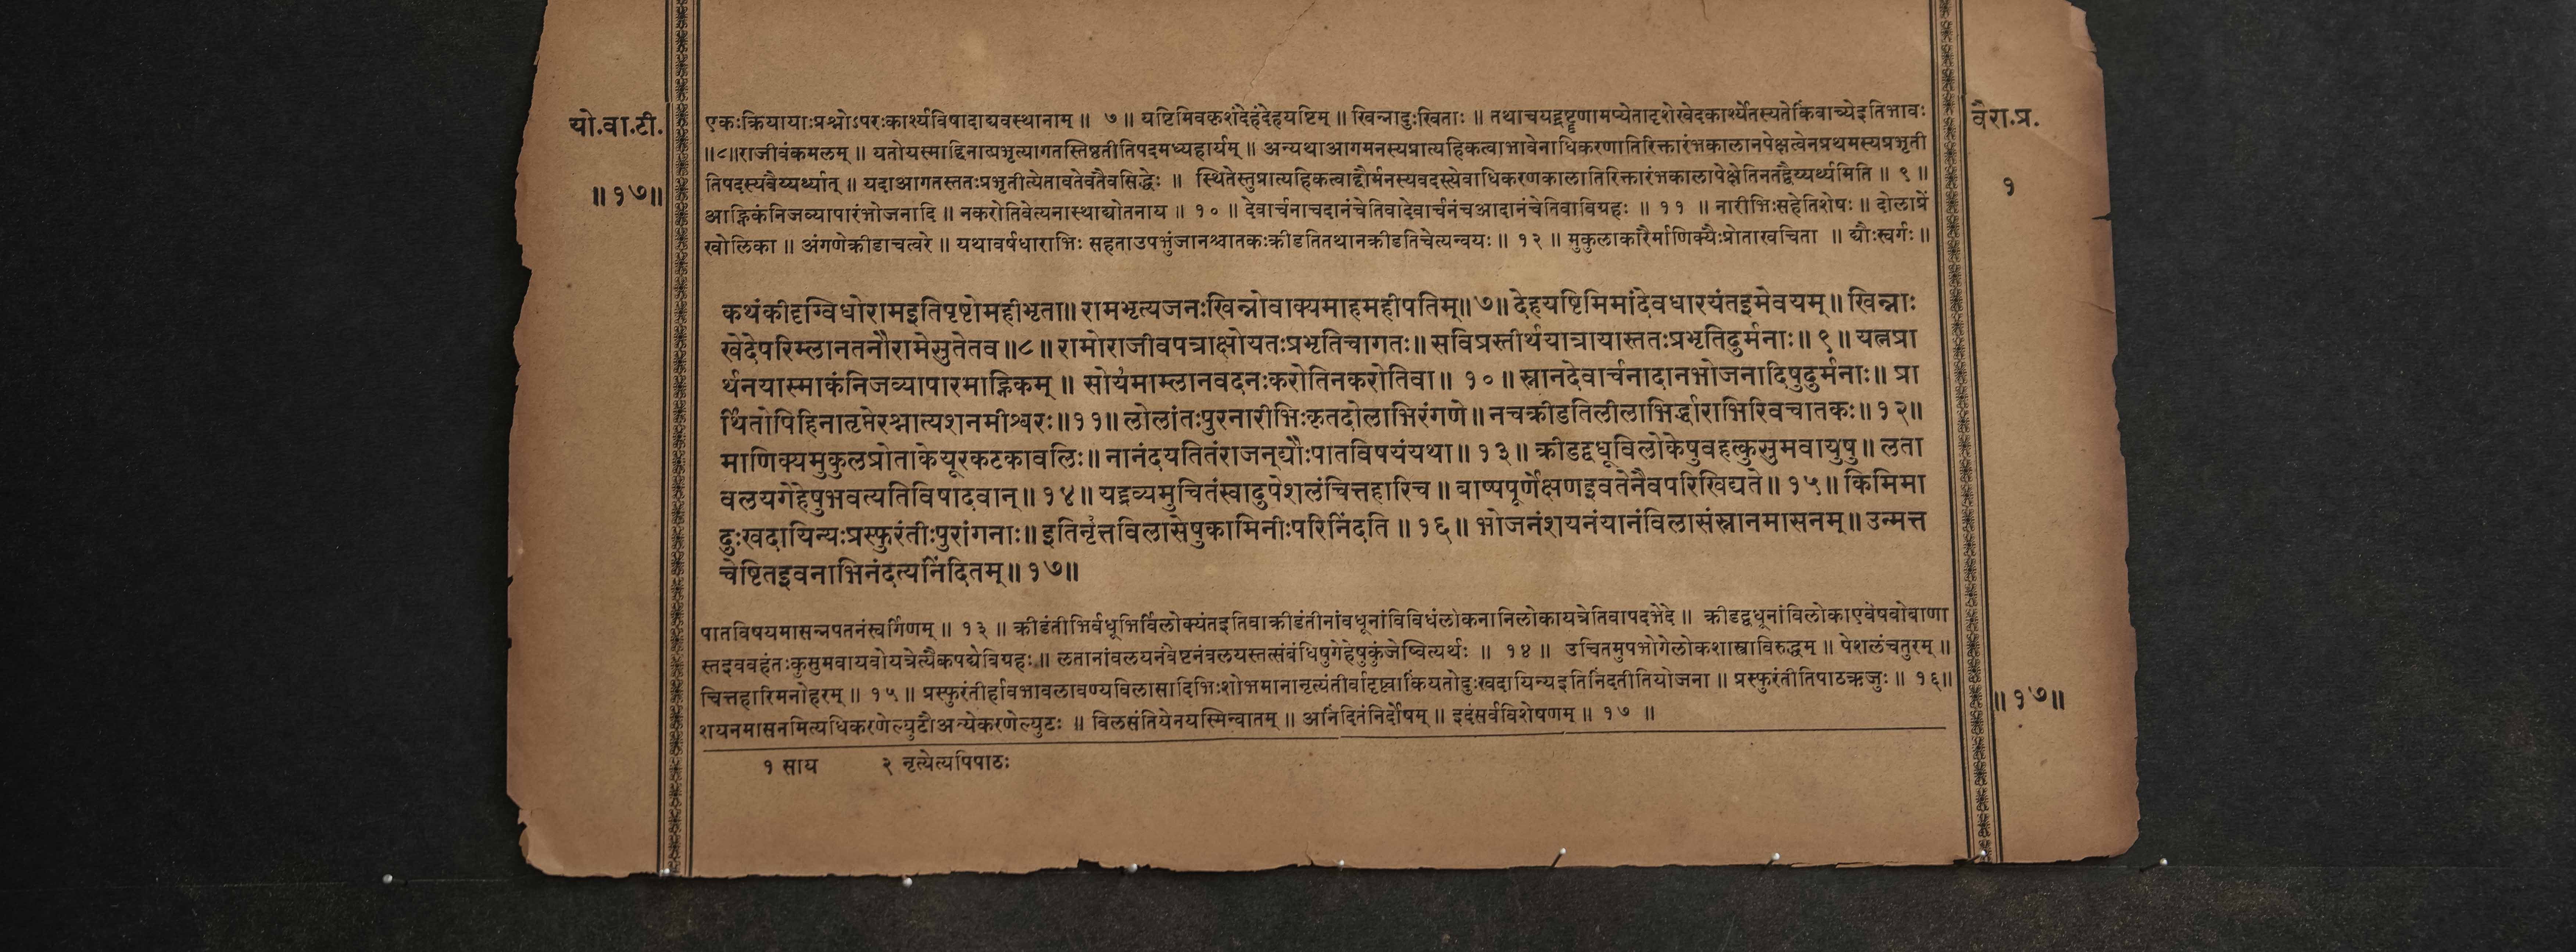 यो.वा.टी.
॥१७॥
एकःक्रियायाःप्रश्नोऽपरःकार्श्यविषादाद्यवस्थानाम् ॥ ७ ॥ यष्टिमिवकृशंदेहंदेहयष्टिम् ॥ खिन्नादुःखिताः ॥ तथाचयद्द्रष्टॄणामप्येतादृशेखेदकार्श्येतस्यतेकिंवाच्येइतिभावः
॥८॥राजीवंकमलम् ॥ यतोयस्माद्दिनात्प्रभृत्यागतस्तिष्ठतीतिपदमध्यहार्यम् ॥ अन्यथाआगमनस्यप्रात्यहिकत्वाभावेनाधिकरणातिरिक्तारंभकालानपेक्षत्वेनप्रथमस्यप्रभृती
तिपदस्यवैय्यर्थ्यात् ॥ यदाआगतस्ततःप्रभृतीत्येतावतेवतैवसिद्धेः ॥ स्थितेस्तुप्रात्यहिकत्वाद्दौर्मनस्यवदस्त्येवाधिकरणकालातिरिक्तारंभकालापेक्षेतिनतद्वैय्यर्थ्यमिति ॥ ९ ॥
आह्निकंनिजव्यापारंभोजनादि ॥ नकरोतिवेत्यनास्थाद्योतनाय ॥ १० ॥ देवार्चनाचदानंचेतिवादेवार्चनंचआदानंचेतिवाविग्रहः ॥ ११ ॥ नारीभिःसहेतिशेषः ॥ दोलाप्रें
खोलिका ॥ अंगणेक्रीडाचत्वरे ॥ यथावर्षधाराभिः सहताउपभुंजानश्चातकःक्रीडतितथानक्रीडतिचेत्यन्वयः ॥ १२ ॥ मुकुलाकारैर्माणिक्यैःप्रोताखचिता ॥ द्यौःस्वर्गः ॥
कथंकीदृग्विधोरामइतिपृष्टोमहीभृता॥ रामभृत्यजनःखिन्नोवाक्यमाहमहीपतिम्॥ ७॥ देहयष्टिमिमांदेवधारयंतइमेवयम्॥ खिन्नाः
खेदेपरिम्लानतनौरामेसुतेतव॥८॥ रामोराजीवपत्राक्षोयतःप्रभृतिचागतः॥ सविप्रस्तीर्थयात्रायास्ततःप्रभृतिदुर्मनाः॥ ९॥ यत्नप्रा
र्थनयास्माकंनिजव्यापारमाह्निकम् ॥ सोयंमाम्लानवदनःकरोतिनकरोतिवा॥ १०॥ स्नानदेवार्चनादानभोजनादिषुदुर्मनाः॥ प्रा
र्थितोपिहिनातृप्तेरश्नात्यशनमीश्वरः॥११॥ लोलांतःपुरनारीभिःकृतदोलाभिरंगणे॥ नचक्रीडतिलीलाभिर्द्धाराभिरिवचातकः॥१२॥
माणिक्यमुकुलप्रोताकेयूरकटकावलिः॥ नानंदयतितंराजन्द्यौःपातविषयंयथा॥ १३॥ क्रीडद्वधूविलोकेषुवहत्कुसुमवायुषु॥ लता
वलयगेहेषुभवत्यतिविषादवान्॥ १४॥ यद्द्रव्यमुचितंस्वादुपेशलंचित्तहारिच॥ बाष्पपूर्णेक्षणइवतेनैवपरिखिद्यते॥ १५॥ किमिमा
दुःखदायिन्यःप्रस्फुरंतीःपुरांगनाः॥ इतिनृत्तविलासेषुकामिनीःपरिनिंदति ॥ १६॥ भोजनंशयनंयानंविलासंस्नानमासनम्॥ उन्मत्त
चेष्टितइवनाभिनंदत्यनिंदितम्॥ १७॥
पातविषयमासन्नपतनंस्वर्गिणम् ॥ १३ ॥ क्रीडंतीभिर्वधूभिर्विलोक्यंतइतिवाक्रीडंतीनांवधूनांविविधंलोकनानिलोकायत्रेतिवापदभेदे ॥ क्रीडद्वधूनांविलोकाएवेषवोबाणा
स्तइववहंतःकुसुमवायवोयत्रेत्यैकपद्येविग्रहः ॥ लतानांवलयनंवेष्टनंवलयस्तत्संबंधिषुगेहेषुकुंजेष्वित्यर्थः ॥ १४ ॥ उचितमुपभोगेलोकशास्त्राविरुद्धम् ॥ पेशलंचतुरम् ॥
चित्तहारिमनोहरम् ॥ १५ ॥ प्रस्फुरंतीर्हावभावलावण्यविलासादिभिःशोभमानानृत्यंतीर्वादृष्ट्वाकियतोदुःखदायिन्यइतिनिंदतीतियोजना ॥ प्रस्फुरंतीतिपाठऋजुः ॥ १६॥
शयनमासनमित्यधिकरणेल्युटौअन्येकरणेल्युटः ॥ विलसंतियेनयस्मिन्वातम् ॥ अनिंदितंनिर्दोषम् ॥ इदंसर्वविशेषणम् ॥ १७ ॥
१ साय २ नृत्येत्यपिपाठः
वैरा.प्र.
१
॥१७॥